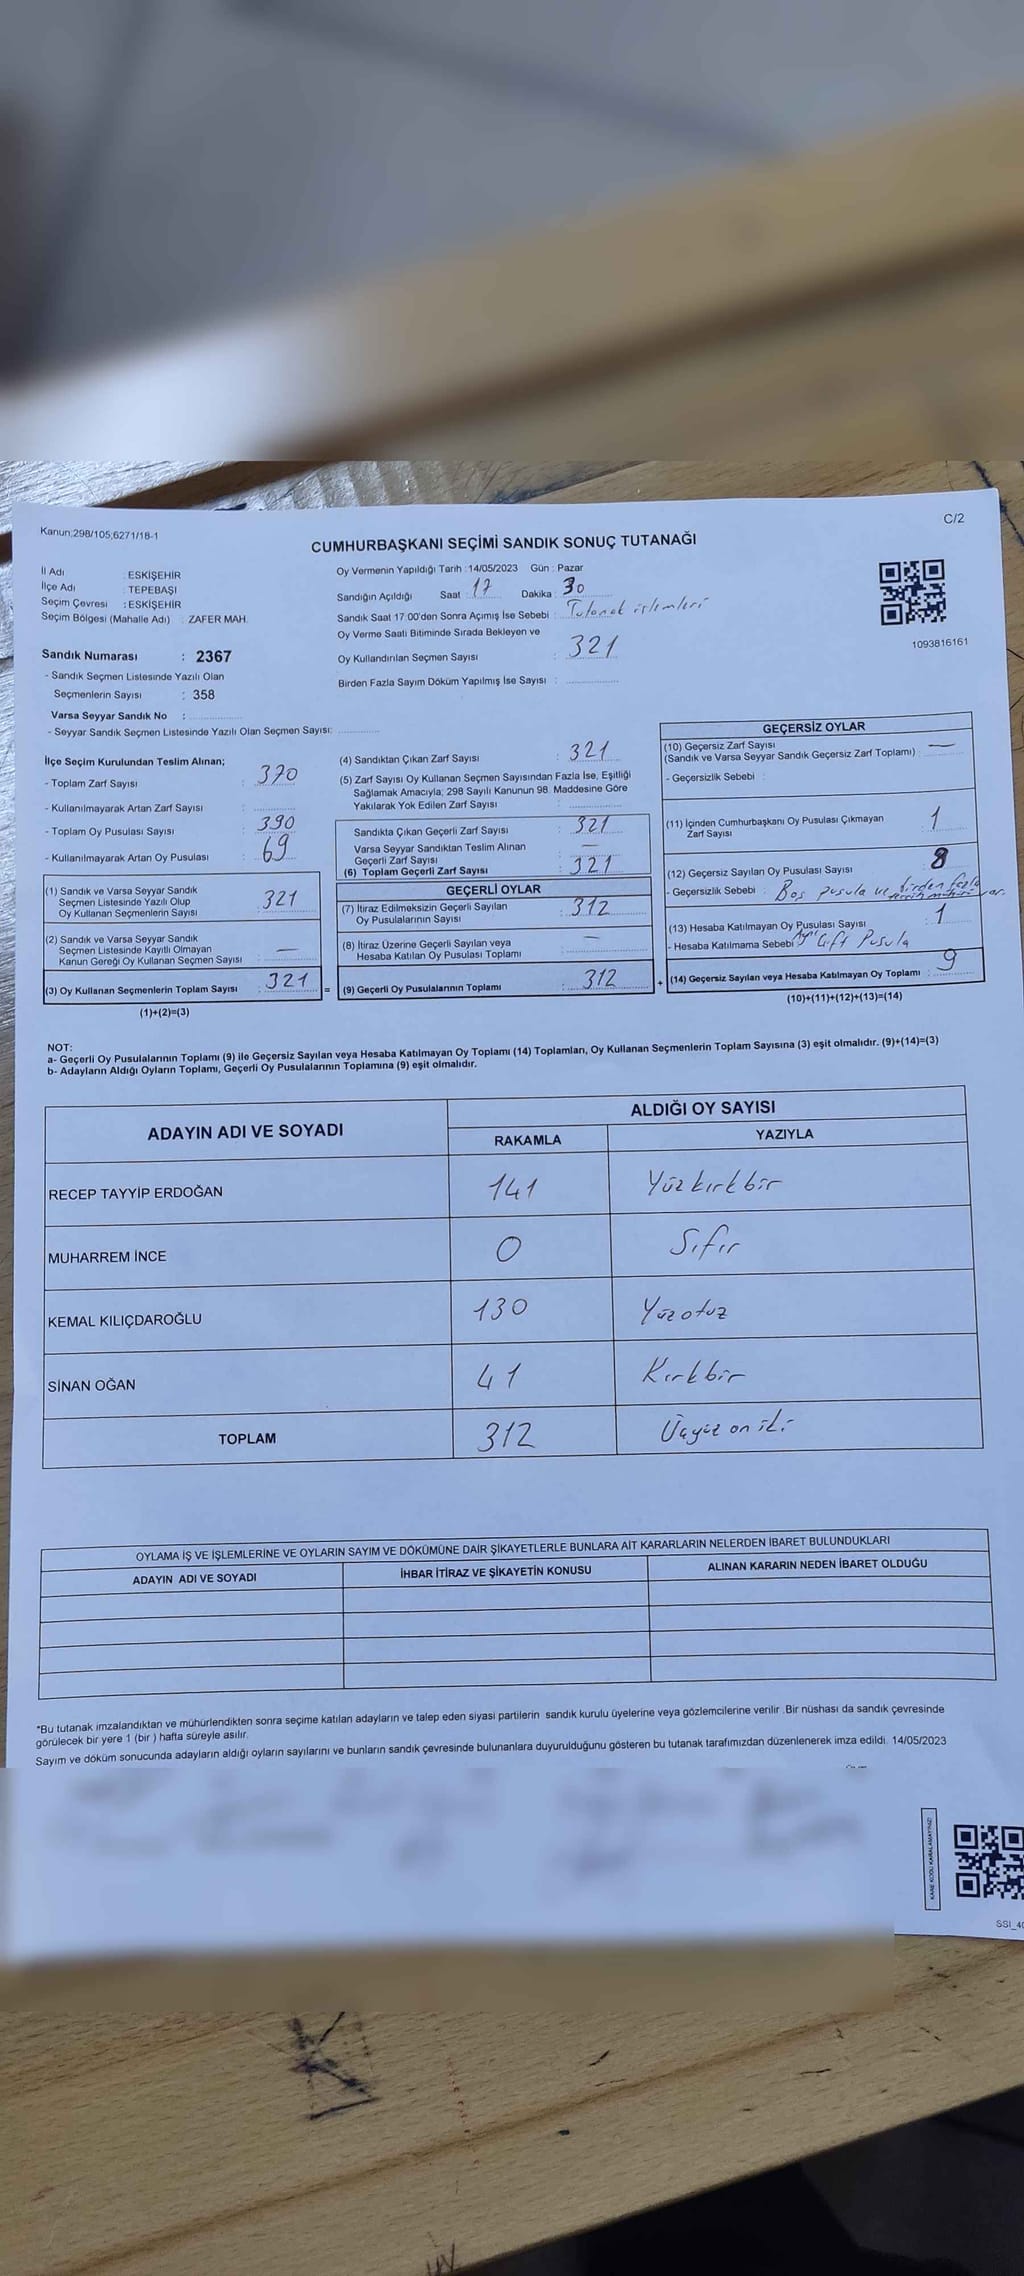 Kanun;298/105;6271/18-1
C/2
CUMHURBAŞKANI SEÇİMİ SANDIK SONUÇ TUTANAĞI
İl Adı : ESKİŞEHİR
İlçe Adı : TEPEBAŞI
Seçim Çevresi : ESKİŞEHİR
Seçim Bölgesi (Mahalle Adı) : ZAFER MAH.
Sandık Numarası : 2367
- Sandık Seçmen Listesinde Yazılı Olan
Seçmenlerin Sayısı : 358
Varsa Seyyar Sandık No :
- Seyyar Sandık Seçmen Listesinde Yazılı Olan Seçmen Sayısı:
Oy Vermenin Yapıldığı Tarih : 14/05/2023 Gün : Pazar
Sandığın Açıldığı Saat : 17 Dakika : 30
Sandık Saat 17:00'den Sonra Açımış İse Sebebi : Tutanak işlemleri
Oy Verme Saati Bitiminde Sırada Bekleyen ve
Oy Kullandırılan Seçmen Sayısı : 321
Birden Fazla Sayım Döküm Yapılmış İse Sayısı :
1093816161
İlçe Seçim Kurulundan Teslim Alınan;
- Toplam Zarf Sayısı : 370
- Kullanılmayarak Artan Zarf Sayısı :
- Toplam Oy Pusulası Sayısı : 390
- Kullanılmayarak Artan Oy Pusulası : 69
(1) Sandık ve Varsa Seyyar Sandık
Seçmen Listesinde Yazılı Olup
Oy Kullanan Seçmenlerin Sayısı : 321
(2) Sandık ve Varsa Seyyar Sandık
Seçmen Listesinde Kayıtlı Olmayan
Kanun Gereği Oy Kullanan Seçmen Sayısı : —
(3) Oy Kullanan Seçmenlerin Toplam Sayısı : 321 =
(1)+(2)=(3)
(4) Sandıktan Çıkan Zarf Sayısı : 321
(5) Zarf Sayısı Oy Kullanan Seçmen Sayısından Fazla İse, Eşitliği
Sağlamak Amacıyla; 298 Sayılı Kanunun 98. Maddesine Göre
Yakılarak Yok Edilen Zarf Sayısı :
Sandıkta Çıkan Geçerli Zarf Sayısı : 321
Varsa Seyyar Sandıktan Teslim Alınan
Geçerli Zarf Sayısı : —
(6) Toplam Geçerli Zarf Sayısı : 321
GEÇERLİ OYLAR
(7) İtiraz Edilmeksizin Geçerli Sayılan
Oy Pusulalarının Sayısı : 312
(8) İtiraz Üzerine Geçerli Sayılan veya
Hesaba Katılan Oy Pusulası Toplamı : —
(9) Geçerli Oy Pusulalarının Toplamı : 312 +
GEÇERSİZ OYLAR
(10) Geçersiz Zarf Sayısı
(Sandık ve Varsa Seyyar Sandık Geçersiz Zarf Toplamı) : —
- Geçersizlik Sebebi :
(11) İçinden Cumhurbaşkanı Oy Pusulası Çıkmayan
Zarf Sayısı : 1
(12) Geçersiz Sayılan Oy Pusulası Sayısı : 8
- Geçersizlik Sebebi : Boş pusula ve birden fazla tercih mührü var.
(13) Hesaba Katılmayan Oy Pusulası Sayısı : 1
- Hesaba Katılmama Sebebi : Aynı Çift Pusula
(14) Geçersiz Sayılan veya Hesaba Katılmayan Oy Toplamı : 9
(10)+(11)+(12)+(13)=(14)
NOT:
a- Geçerli Oy Pusulalarının Toplamı (9) ile Geçersiz Sayılan veya Hesaba Katılmayan Oy Toplamı (14) Toplamları, Oy Kullanan Seçmenlerin Toplam Sayısına (3) eşit olmalıdır. (9)+(14)=(3)
b- Adayların Aldığı Oyların Toplamı, Geçerli Oy Pusulalarının Toplamına (9) eşit olmalıdır.
ADAYIN ADI VE SOYADI
ALDIĞI OY SAYISI
RAKAMLA YAZIYLA
RECEP TAYYİP ERDOĞAN 141 Yüzkırkbir
MUHARREM İNCE 0 Sıfır
KEMAL KILIÇDAROĞLU 130 Yüzotuz
SİNAN OĞAN 41 Kırkbir
TOPLAM 312 Üçyüz on iki
OYLAMA İŞ VE İŞLEMLERİNE VE OYLARIN SAYIM VE DÖKÜMÜNE DAİR ŞİKAYETLERLE BUNLARA AİT KARARLARIN NELERDEN İBARET BULUNDUKLARI
ADAYIN ADI VE SOYADI İHBAR İTİRAZ VE ŞİKAYETİN KONUSU ALINAN KARARIN NEDEN İBARET OLDUĞU
*Bu tutanak imzalandıktan ve mühürlendikten sonra seçime katılan adayların ve talep eden siyasi partilerin sandık kurulu üyelerine veya gözlemcilerine verilir .Bir nüshası da sandık çevresinde
görülecek bir yere 1 (bir ) hafta süreyle asılır.
Sayım ve döküm sonucunda adayların aldığı oyların sayılarını ve bunların sandık çevresinde bulunanlara duyurulduğunu gösteren bu tutanak tarafımızdan düzenlenerek imza edildi. 14/05/2023
KARE KODU KARALAMAYINIZ!